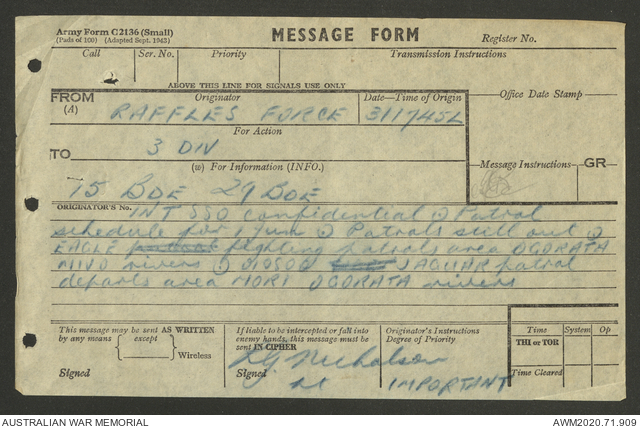 Army Form C2136 (Small)
(Pads of 100) (Adapted Sept. 1942)
MESSAGE FORM
Register No.
Call
Ser. No.
Priority
Transmission Instructions
ABOVE THIS LINE FOR SIGNALS USE ONLY
FROM
(A)
Originator
RAFFLES FORCE
Date—Time of Origin
311745L
Office Date Stamp
For Action
TO
3 DIV
(w) For Information (INFO.)
Message Instructions
GR
15 BDE 29 BDE
ORIGINATOR'S No. INT 550 confidential (.) Patrol
schedule for 1 Jun (.) Patrols still out (.)
EAGLE fighting patrols area OGORATA
MIVO rivers (.) 010500 JAGUAR patrol
departs area MORI OGORATA rivers
This message may be sent AS WRITTEN
by any means except
Wireless
Signed
If liable to be intercepted or fall into
enemy hands, this message must be
sent IN CIPHER
Signed
Nicholson
Lt
Originator's Instructions
Degree of Priority
IMPORTANT
Time
System
Op
THI or TOR
Time Cleared
AUSTRALIAN WAR MEMORIAL
AWM2020.71.909